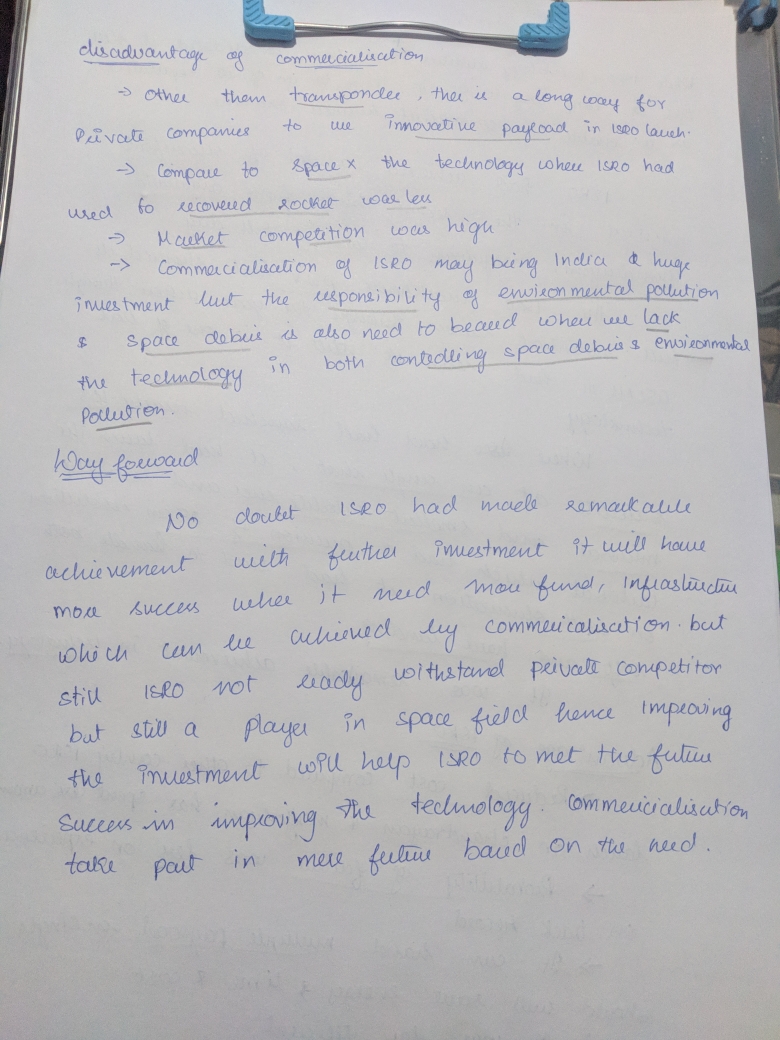 disadvantage of commercialisation
→ Other them transponder, ther is a long way for
Private companies to use innovative payload in ISRO lauch.
→ Compare to space x the technology when ISRO had
used to recovered rocket was less
→ Market competition was high
→ Commercialisation of ISRO may being India a huge
investment but the responsibility of environmental pollution
& space debris is also need to beared when we lack
the technology in both controlling space debris & environmental
Pollution.
Way forward
No doubt ISRO had made remarkable
achievement with further investment it will have
more success wher it need more fund, infrastructure
which can be achieved by commericalisation. but
still ISRO not ready withstand private competitor
but still a player in space field hence improving
the investment will help ISRO to met the future
success in improving the technology. Commericialisation
take part in mere future based on the need.